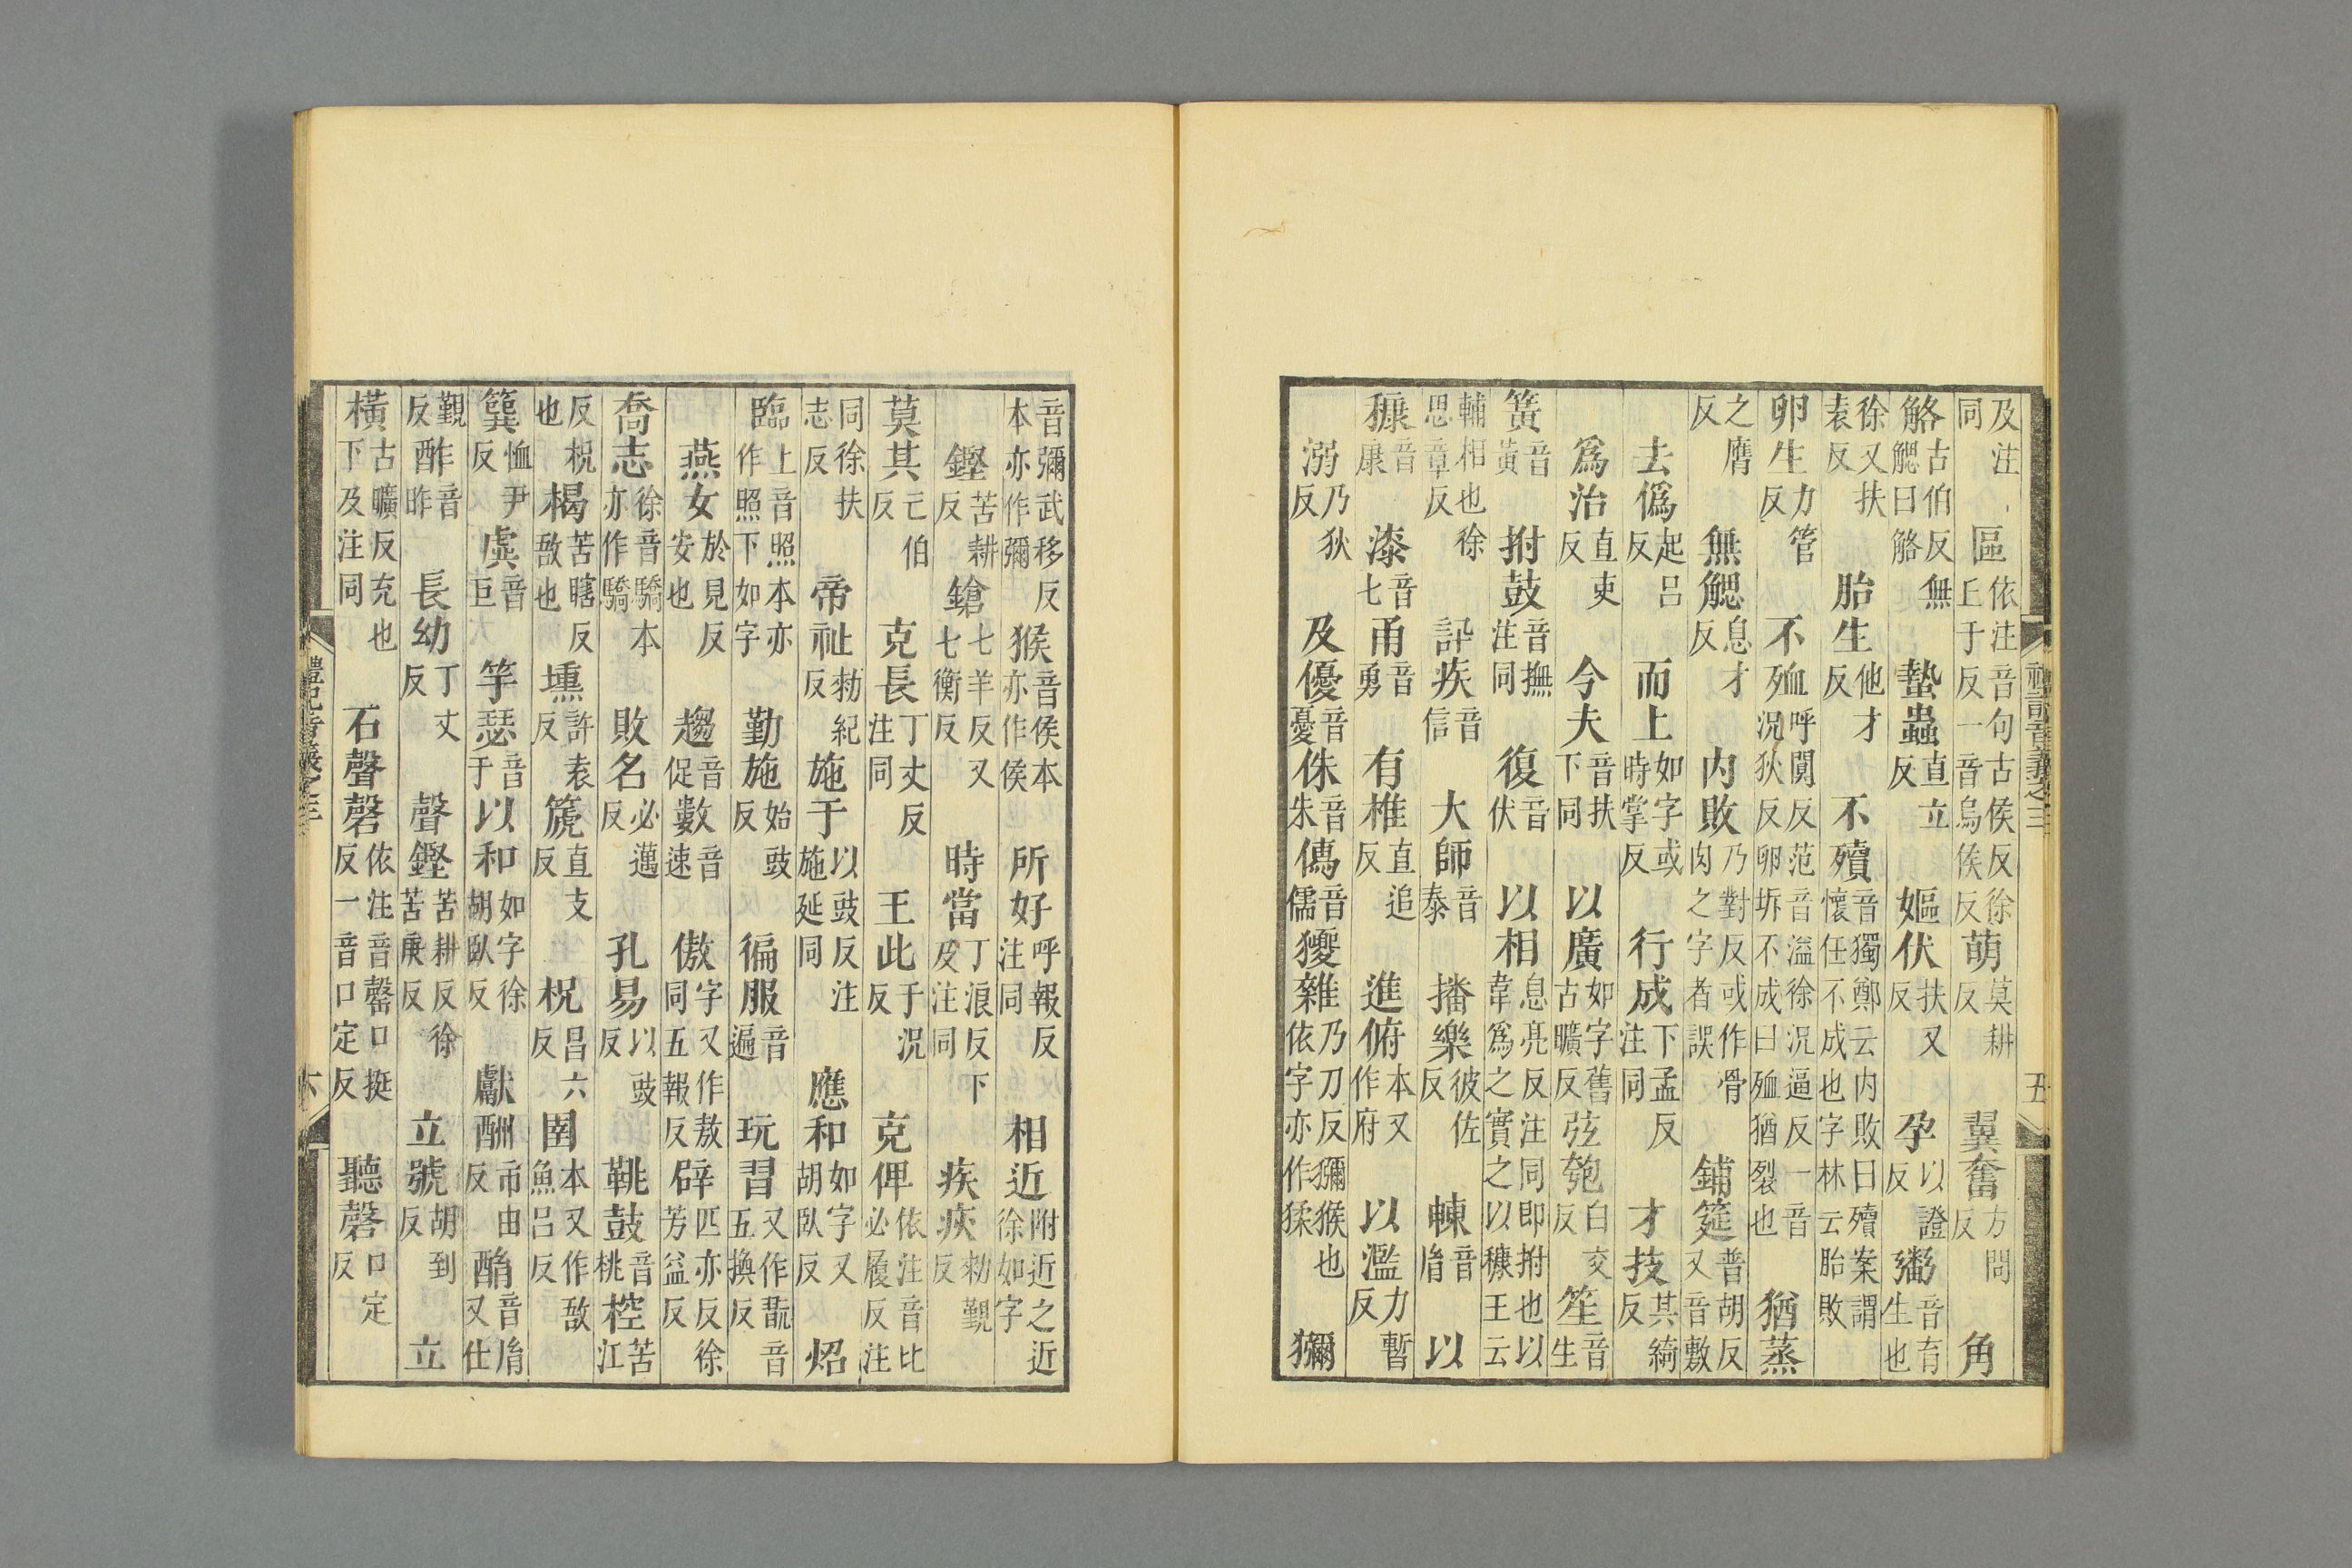 及注同 區依注音句古侯反徐丘于反一音烏侯反 萌莫耕反 翼奮方問反 角
觡古伯反無䚡曰觡 蟄蟲直立反 嫗伏扶又反 孕以證反 鬻音育生也
徐又扶袁反 胎生他才反 不殰音獨鄭云内敗曰殰案謂懷任不成也字林云胎敗
卵生力管反 不殈呼闃反范音溢徐況逼反一音況狄反卵坼不成曰殈猶裂也 猶蒸
之膺反 無䚡息才反 内敗乃對反或作骨肉之字者誤 鋪筵普胡反又音敷
去僞起呂反 而上如字或時掌反 行成下孟反注同 才技其綺反
爲治直吏反 今夫音扶下同 以廣如字舊古曠反 弦匏白交反 笙音生
簧音黃 拊鼓音撫注同 復音伏 以相息亮反注同即拊也以韋爲之實之以穅王云
輔相也徐思章反 訊疾音信 大師音泰 播樂彼佐反 朄音胤 以
穅音康 漆音七 甬音勇 有椎直追反 進俯本又作府 以濫力暫反
溺乃狄反 及優音憂 侏音朱 儒音儒 獶雜乃刀反獼猴也依字亦作猱 獼
禮記音義之三 五
音彌武移反本亦作彌 猴音侯本亦作侯 所好呼報反注同 相近附近之近徐如字
鏗苦耕反 鎗七羊反又七衡反 時當丁浪反下及注同 疾疢勑覲反
莫其亡伯反 克長丁丈反注同 王此于況反 克俾依注音比必履反注
同徐扶志反 帝祉勑紀反 施于以豉反注施延同 應和如字又胡臥反 炤
臨上音照本亦作照下如字 勤施始豉反 徧服音遍 玩習又作翫音五換反
燕女於見反安也 趨音促 數音速 傲字又作敖同五報反 辟匹亦反徐芳益反
喬志徐音驕本亦作驕 敗名必邁反 孔易以豉反 鞉鼓音桃 椌苦江
反柷也 楬苦瞎反敔也 壎許袁反 篪直支反 柷昌六反 圉本又作敔魚呂反
簨恤尹反 虡音巨 竽瑟音于 以和如字徐胡臥反 獻酬市由反 酳音胤又仕
覲反 酢音昨 長幼丁丈反 聲鏗苦耕反徐苦庚反 立號胡到反 立
橫古曠反充也下及注同 石聲磬依注音罄口挺反一音口定反 聽磬口定反
禮記音義之三 六